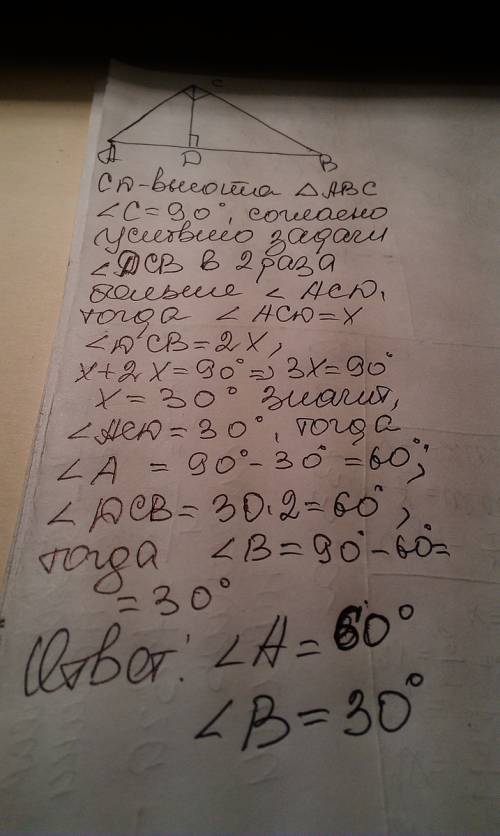 C
A D B
СД-высота △ABC
∠C=90°, согласно
условию задачи
∠ДCB в 2 раза
больше ∠ACД,
тогда ∠ACД=x
∠ДCB=2x,
x+2x=90°=>3x=90°
x=30° значит,
∠ACД=30°, тогда
∠A =90°-30°=60°;
∠ДCB=30·2=60°,
тогда ∠B=90°-60°=
=30°
Ответ: ∠A=60°
∠B=30°